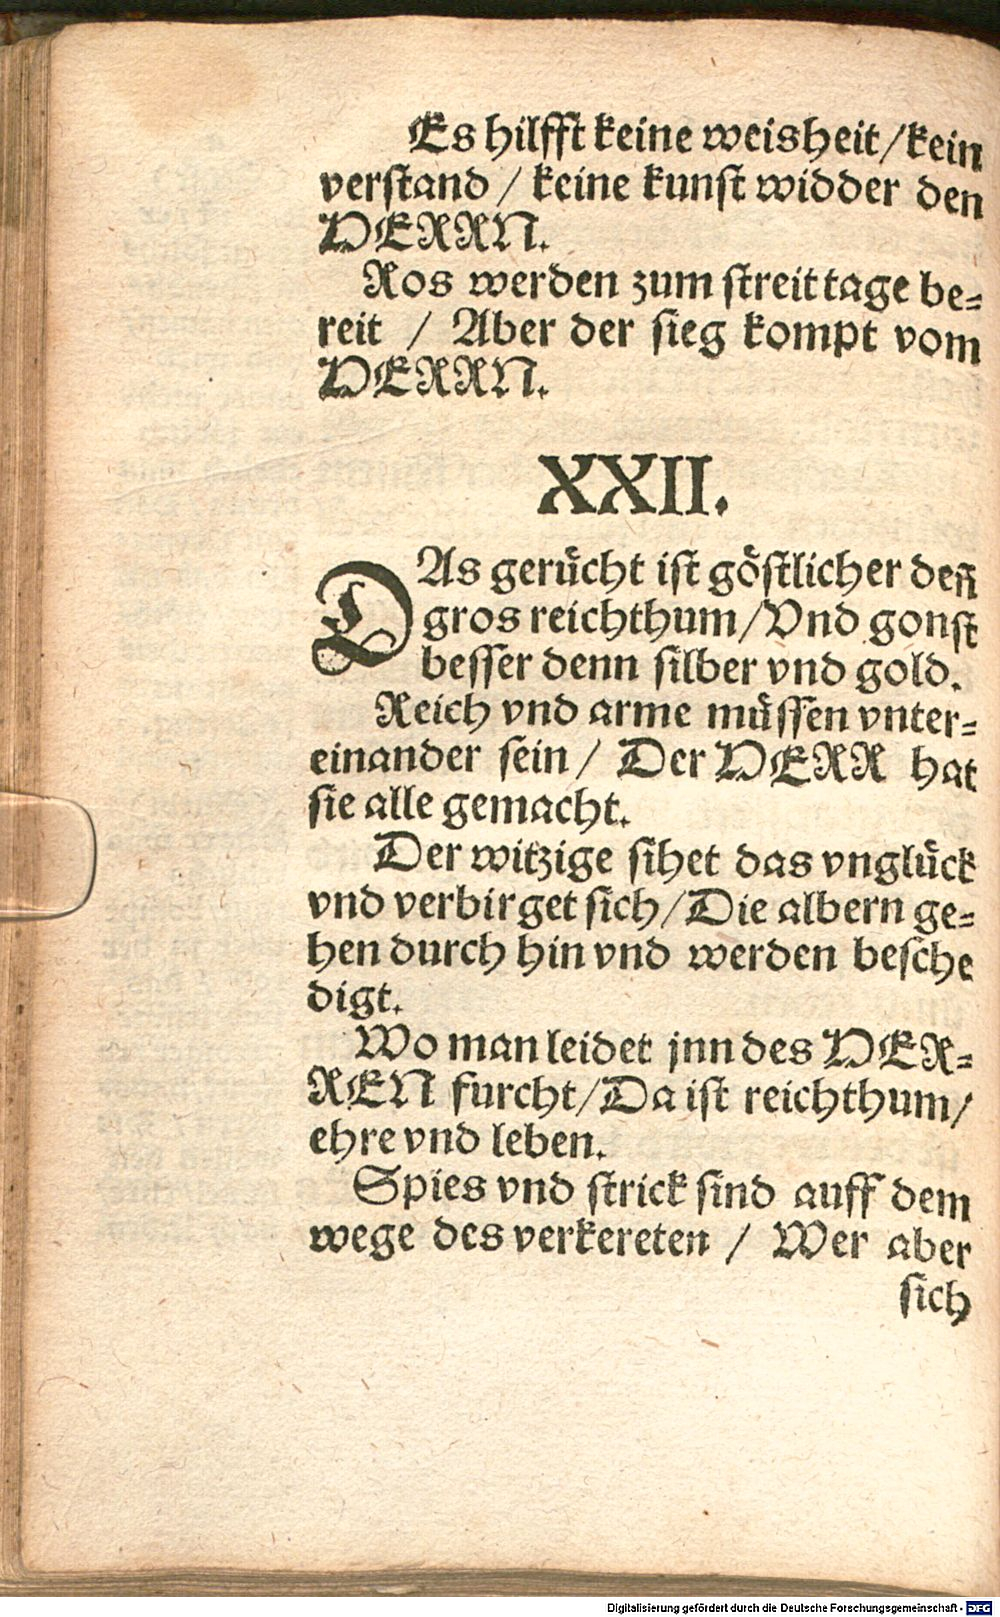 Es hilfft keine weisheit/kein
verstand / keine kunst widder den
HERRN.
Ros werden zum streittage be=
reit / Aber der sieg kompt vom
HERRN.
XXII.
DAs gerücht ist göstlicher deñ
gros reichthum/Vnd gonst
besser denn silber vnd gold.
Reich vnd arme müssen vnter=
einander sein / Der HERR hat
sie alle gemacht.
Der witzige sihet das vnglück
vnd verbirget sich/Die albern ge=
hen durch hin vnd werden besche
digt.
Wo man leidet jnn des HER=
REN furcht/Da ist reichthum/
ehre vnd leben.
Spies vnd strick sind auff dem
wege des verkereten / Wer aber
sich
Digitalisierung gefördert durch die Deutsche Forschungsgemeinschaft - DFG